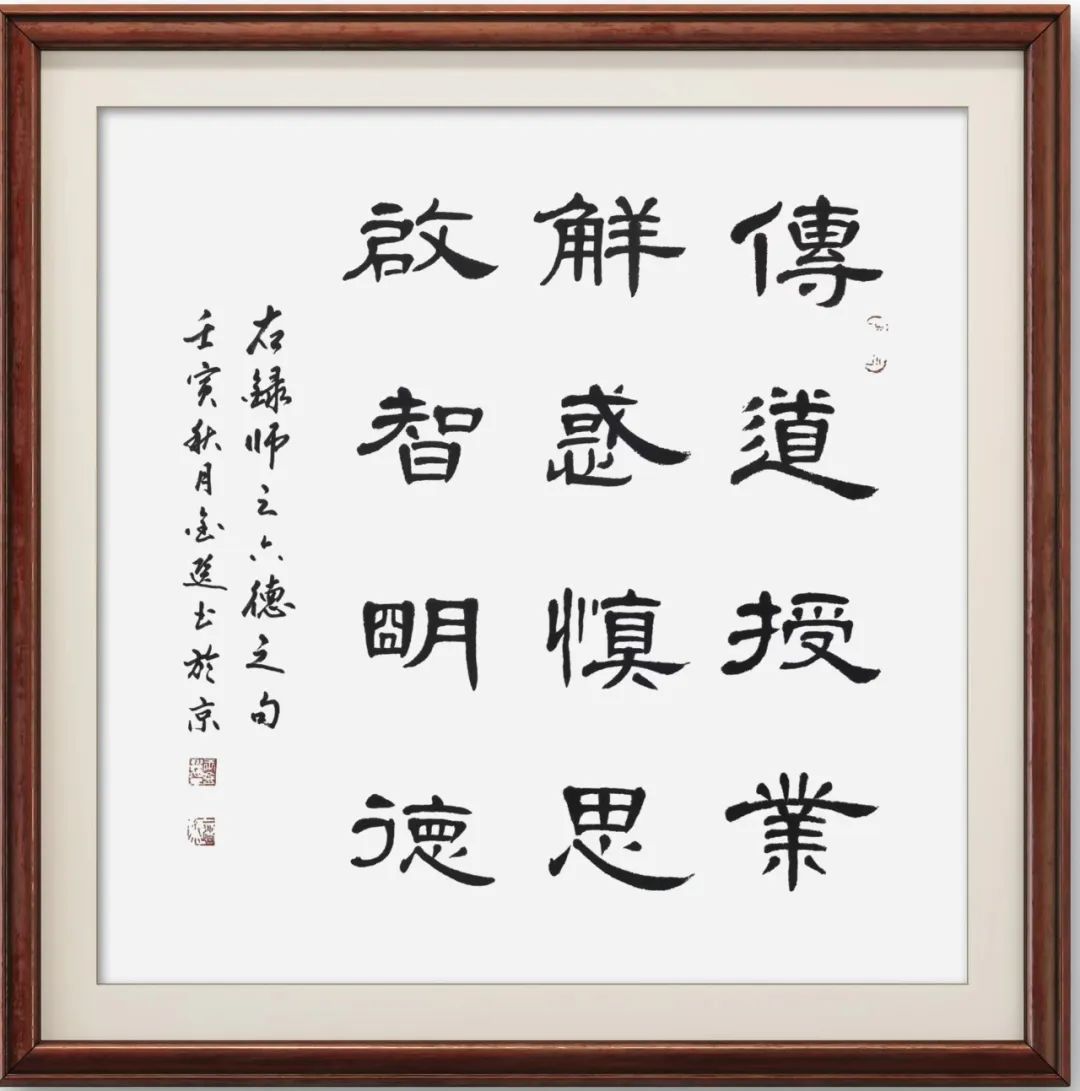 傳道授業
解惑慎思
啟智明德
右録师之六德之句
壬寅秋月金選书於京